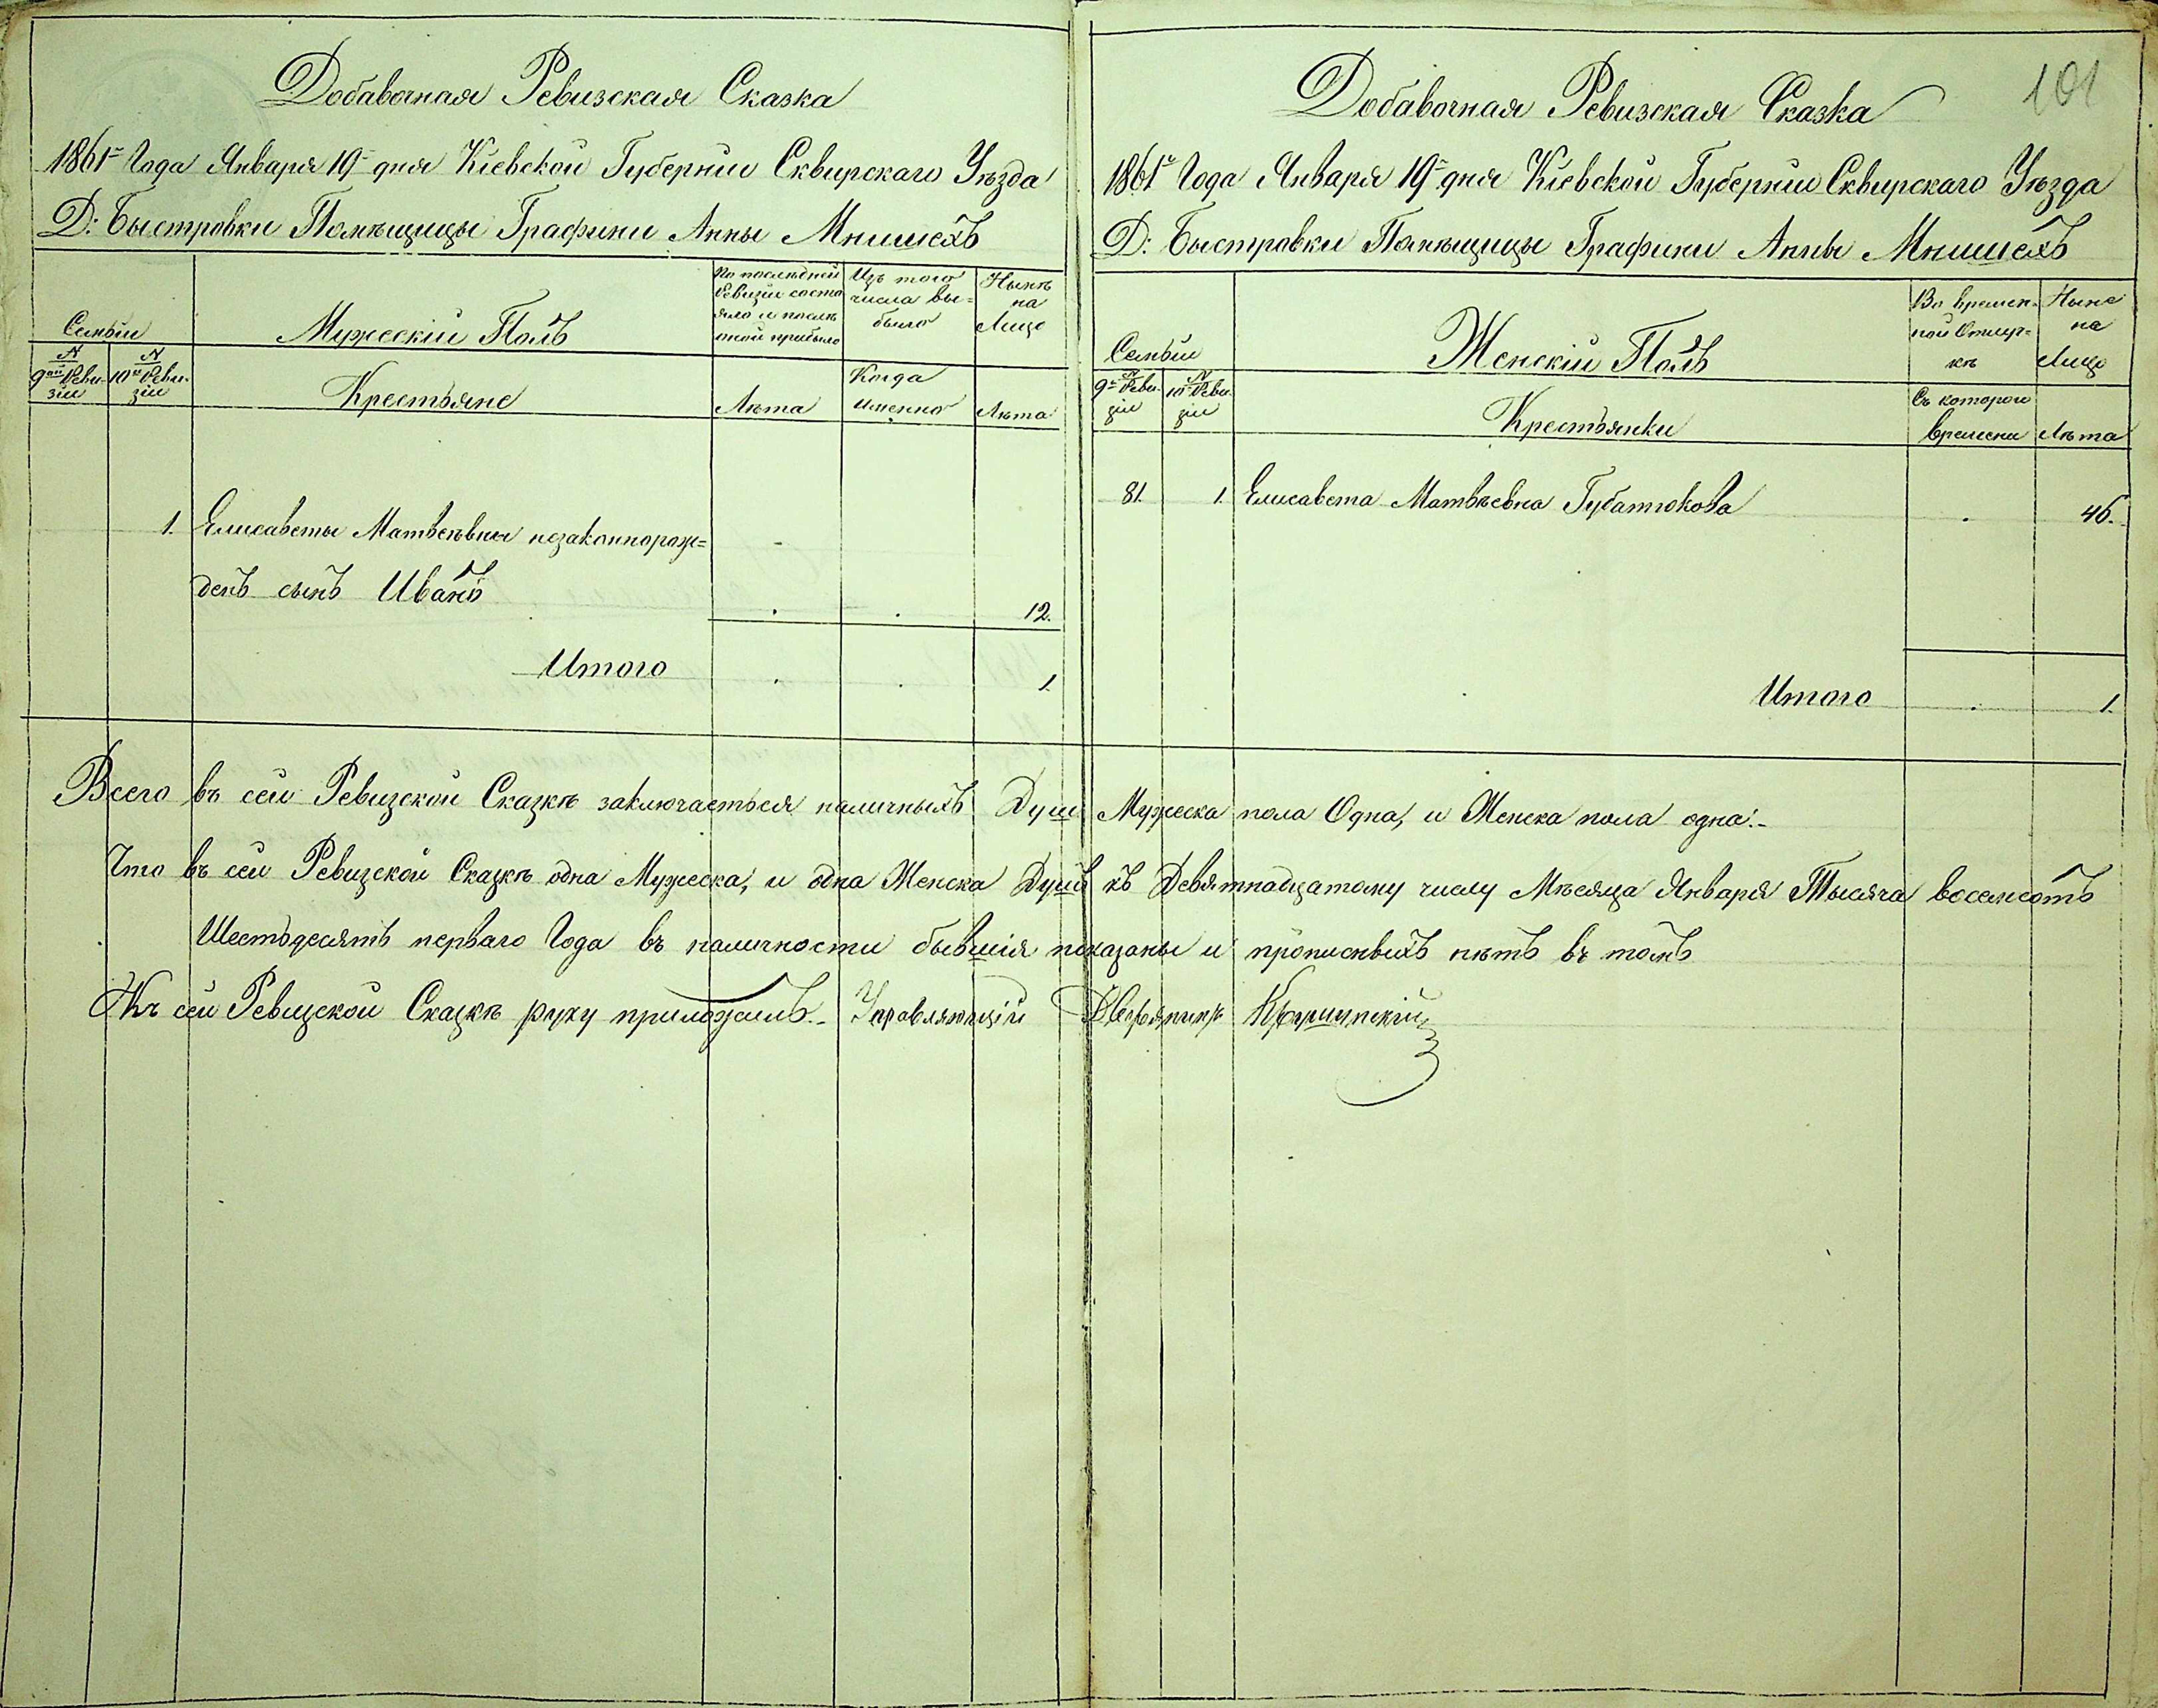 Добавочная Ревизская Сказка
1861го Года Января 19го дня Кіевской Губерніи Сквирскаго Уѣзда
Д: Быстровки Помѣщицы Графини Анны Мнишехъ
Семьи
Мужескій Полъ
По послѣдней
Ревизіи состо
яло и послѣ
того прибыло
Изъ того
числа вы=
было
Нынѣ
на
Лицо
N
9ой Реви-
зіи
N
10й Реви-
зіи
Крестьяне
Лѣта
Когда
именно
Лѣта
1. Елисаветы Матвеѣвны незаконнорож=
денъ сынъ Иванъ . . 12.
Итого . . 1.
101
Добавочная Ревизская Сказка
1861го Года Января 19го дня Кіевской Губерніи Сквирскаго Уѣзда
Д: Быстровки Помѣщицы Графини Анны Мнишехъ
Семьи
Женскій Полъ
Во времен-
ной Отлуч=
кѣ
Ныне
на
Лицо
N
9й Реви-
зіи
N
10й Реви-
зіи
Крестьянки
Съ котораго
времени
Лѣта
81. 1. Елисавета Матвѣевна Губатюкова . 46.
Итого . 1.
Всего въ сей Ревизской Сказкѣ заключаеться наличныхъ Душъ Мужеска пола Одна, и Женска пола одна.-
Что въ сей Ревизской Сказкѣ одна Мужеска, и одна Женска Душъ къ Девятнадцатому числу Мѣсяца Января Тысяча восемсотъ
Шестьдесятъ перваго Года въ наличности бывшія показаны и прописныхъ нѣтъ въ томъ
Къ сей Ревизской Сказкѣ руку приложилъ.- Управляющій Дворянинъ